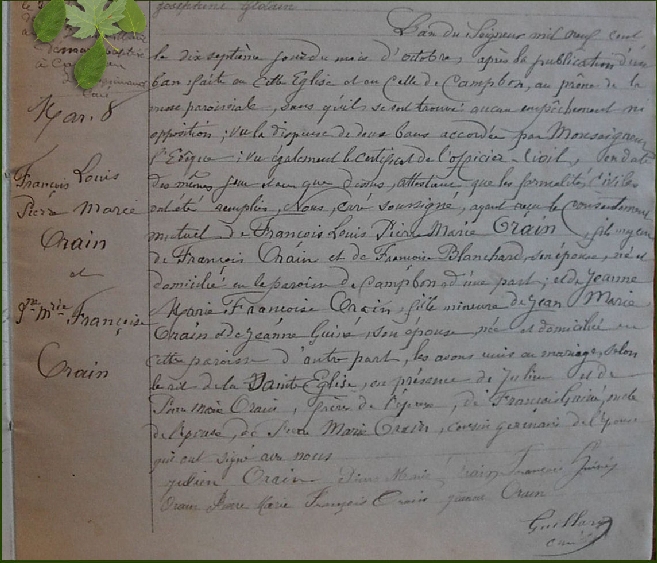 L'an du Seigneur mil neuf cent
le dix septième jour du mois d'octobre, après la publication d'un
ban faite en cette Eglise et en celle de Campbon, au prône de la
messe paroissiale, sans qu'il se soit trouvé aucun empêchement ni
opposition; vu la dispense de deux bans accordée par Monseigneur
l'Evêque; vu également le certificat de l'officier civil, en date
des mêmes jour et an que dessus, attestant que les formalités civiles
ont été remplies, Nous, curé soussigné, ayant reçu le consentement
mutuel de François Louis Pierre Marie Orain, fils majeur
de François Orain et de Françoise Blanchard, son épouse, né et
domicilié en la paroisse de Campbon d'une part; et de Jeanne
Marie Françoise Orain, fille mineure de Jean Marie
Orain et de Jeanne Guiné, son épouse, née et domiciliée en
cette paroisse d'autre part, les avons unis en mariage, selon
le rit de la Sainte Eglise, en présence de Julien et de
Pierre Marie Orain, frères de l'époux, de François Guiné, oncle
de l'épouse, de Pierre Marie Orain, cousin germain de
qui ont signé avec nous
Julien Orain Pierre Marie Orain François
Orain Pierre Marie François Orain Jeanne Orain
curé
Mar. 8
François Louis
Pierre Marie
Orain
et
Jne Mrie Françoise
Orain